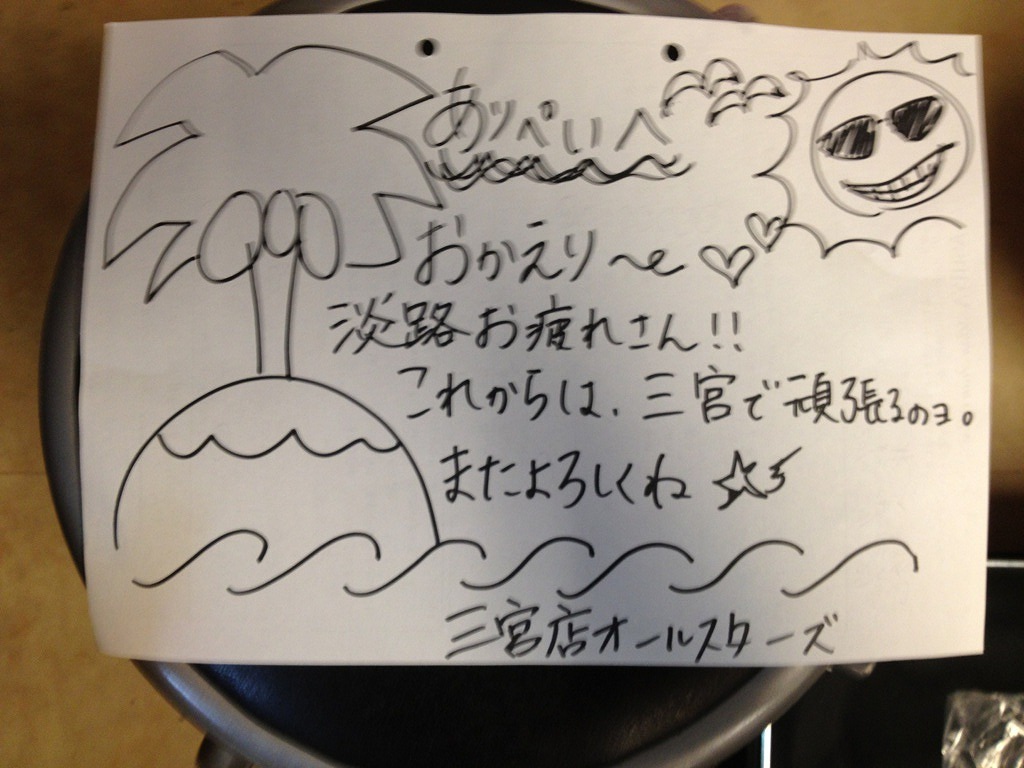 あっぺいへ
おかえり〜♡♡
淡路お疲れさん!!
これからは、三宮で頑張るのヨ。
またよろしくね☆彡
三宮店オールスターズ